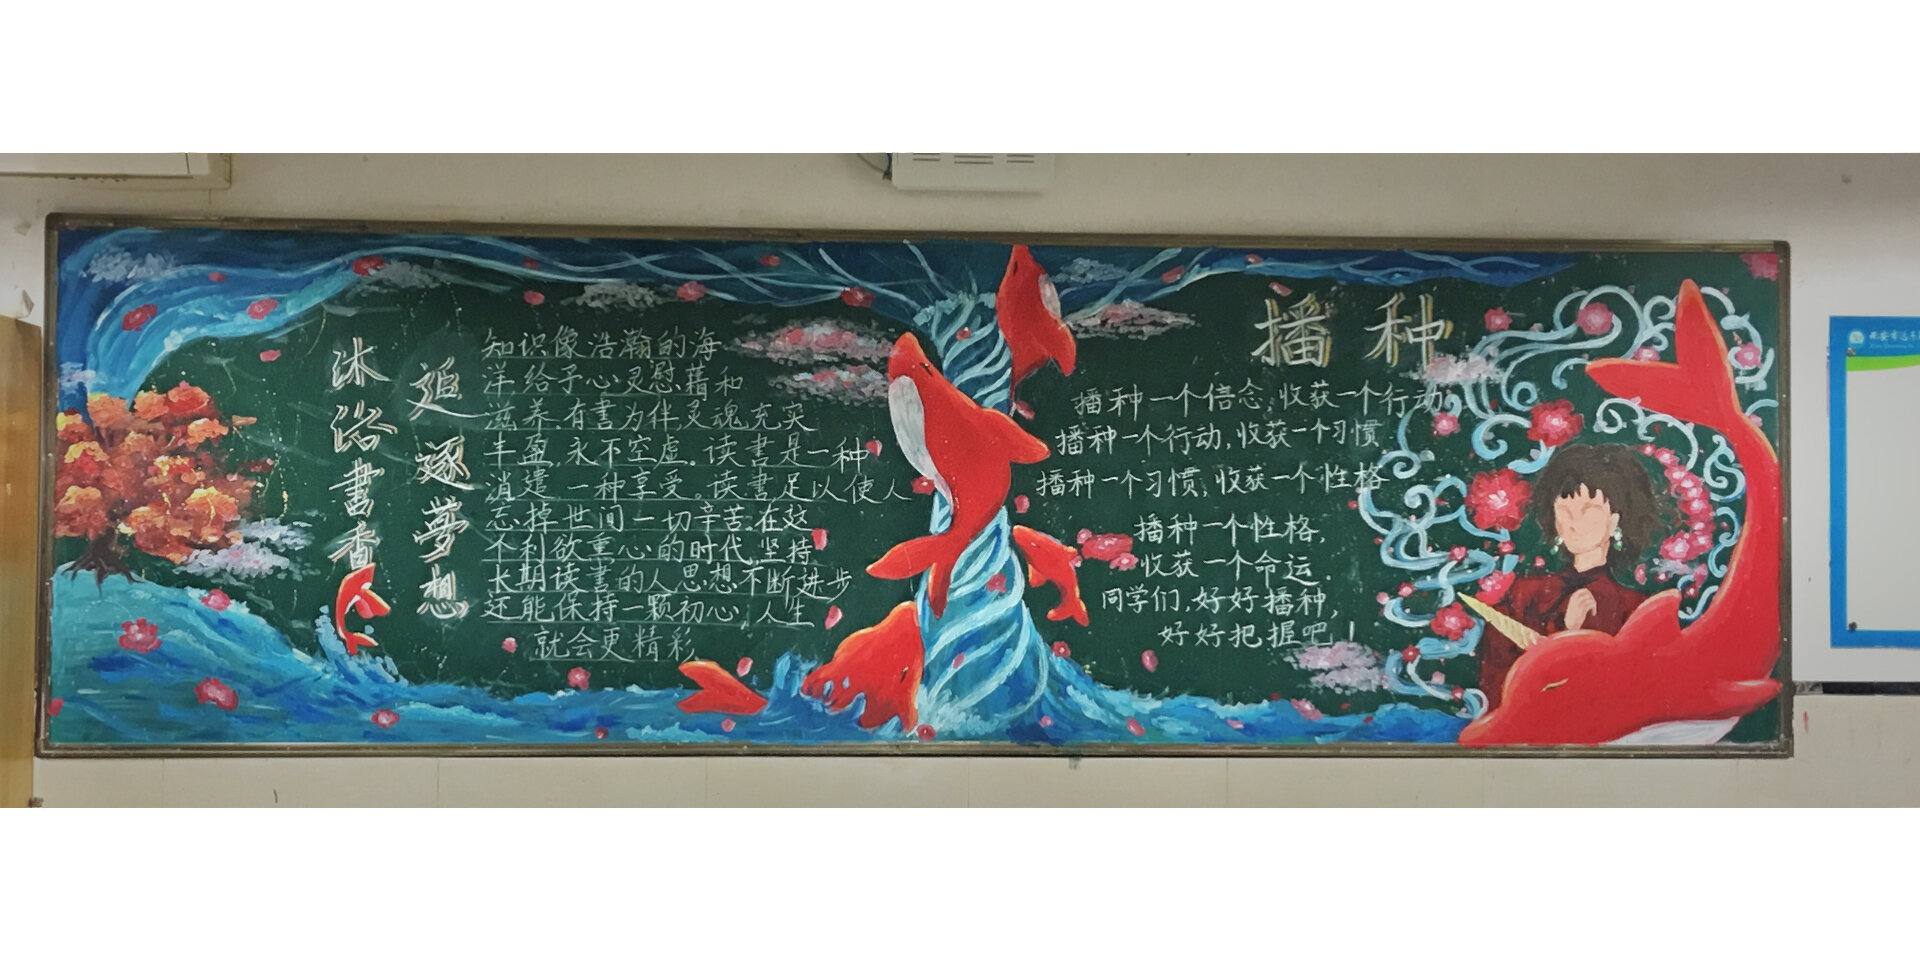 沐浴書香
追逐夢想
知识像浩瀚的海
洋,给予心灵慰藉和
滋养.有書为伴,灵魂充实
丰盈,永不空虚。读書是一种
消遣,一种享受。读書,足以使人
忘掉世间一切辛苦.在这
个利欲重心的时代,坚持
长期读書的人思想不断进步
还能保持一颗初心,人生
就会更精彩
播种
播种一个信念,收获一个行动
播种一个行动,收获一个习惯
播种一个习惯,收获一个性格
播种一个性格,
收获一个命运.
同学们,好好播种,
好好把握吧!